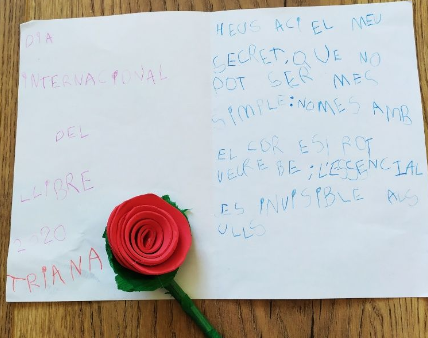 DIA
INTERNACIONAL
DEL
LLIBRE
2020
TRIANA
HEUS ACI EL MEU
SECRET, QUE NO
POT SER MES
SIMPLE: NOMES AMB
EL COR ES POT
VEURE BE; L'ESSENCIAL
ES INVISIBLE ALS
ULLS